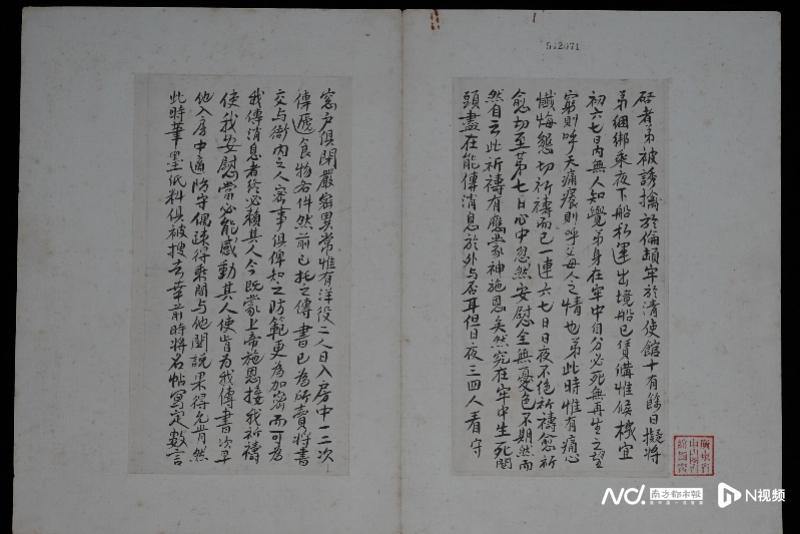 啓者弟被誘擒於倫頓牢於清使館十有餘日擬將
弟綑綁乘夜下船私運出境船已賃備惟候機宜
初六七日內無人知覺弟身在牢中自分必死無再生之望
窮則呼天痛癢則呼父母人之情也弟此時惟有痛心
懺悔懇切祈禱而已一連六七日日夜不絕祈禱愈祈
愈切至第七日心中忽然安慰全無憂色不期然而
然自云此祈禱有應蒙神施恩矣然究在牢中生死關
頭盡在能傳消息於外与否耳但日夜三四人看守
窓戶俱閉嚴密異常惟有洋役二人日入房中一二次
傳遞食物各件然前已托之傳書已為所賣將書
交与衙內之人密事俱俾知之防範更為加密而可為
我傳消息者終必賴其人今既蒙上帝施恩接我祈禱
使我安慰當必能感動其人使肯為我傳書次早
他入房中適防守偶疎得乘間与他關說果得允肯然
此時筆墨紙料俱被搜去幸前時將名帖寫定數言
南方都市报
N视频